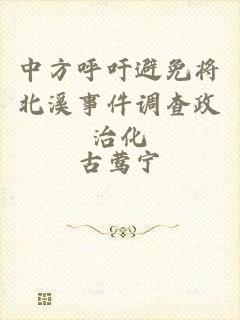 中方呼吁避免将
北溪事件调查政
治化
古莺宁